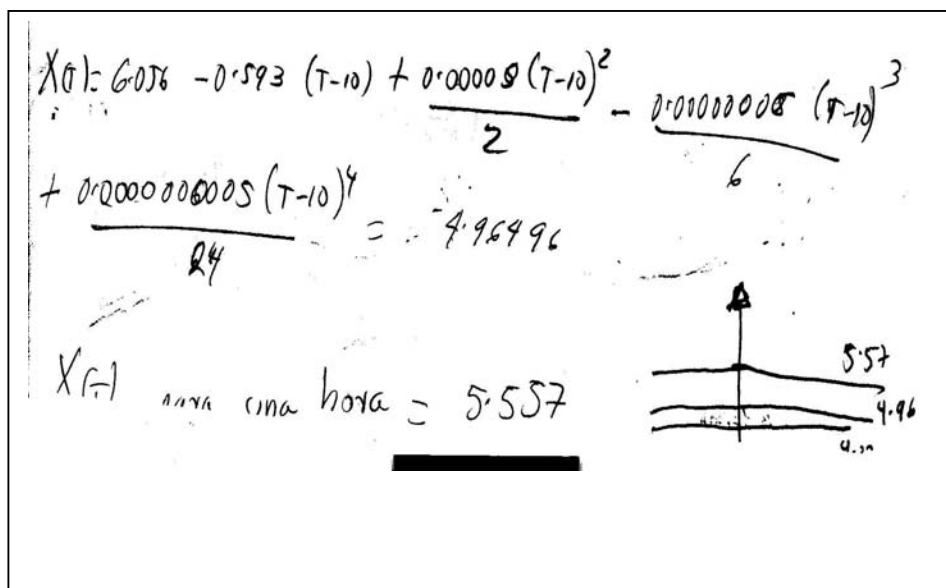 X(T)= 6.056 - 0.593 (T-10) + 0.00005 (T-10)² / 2 - 0.00000005 (T-10)³ / 6
+ 0.0000000005 (T-10)⁴ / 24 = 4.96496
X(T) para una hora = 5.557
5.57
4.96